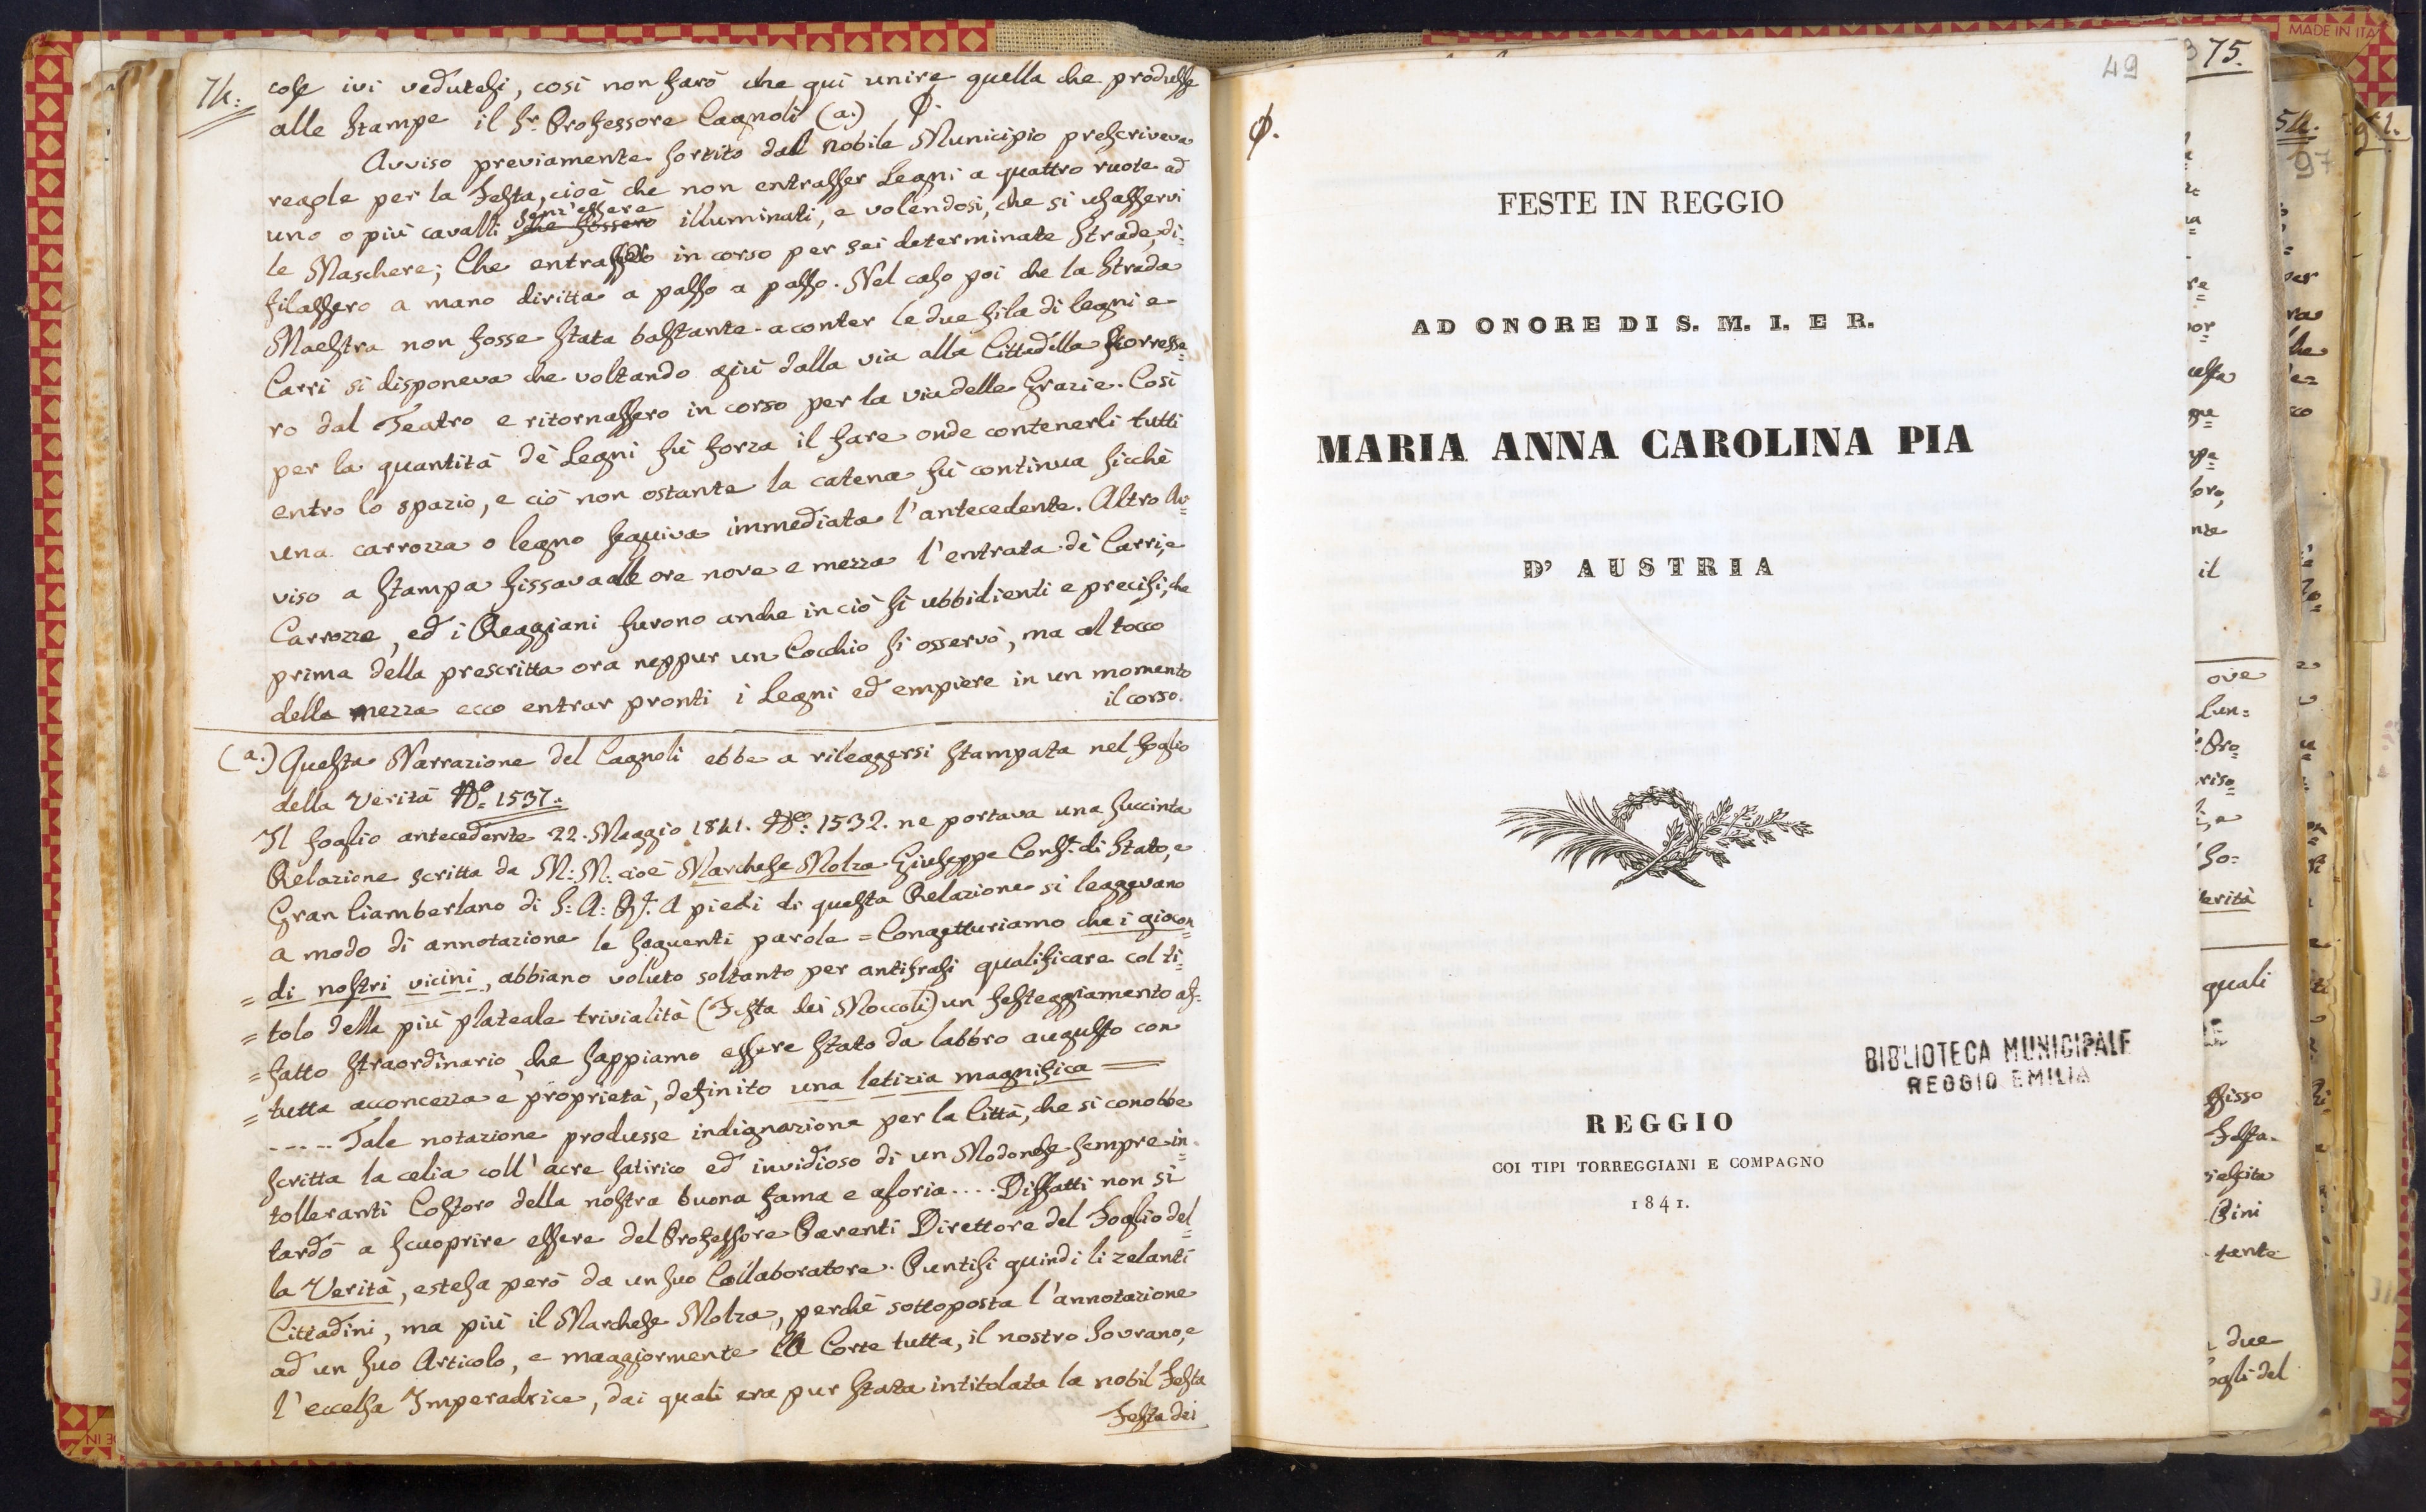 74:
cose ivi vedutesi, così non farò che qui unire quella che produsse
alle stampe il Sr. Professore Cagnoli (a.) φ.
Avviso previamente sortito dal nobile Municipio prescriveva
regole per la Festa, cioè che non entrasser Legni a quattro ruote ad
uno o più cavalli senz'essere che fossero illuminati, e volendosi, che si usasservi
le Maschere; Che entrassero in corso per sei determinate Strade, di=
filassero a mano diritta a passo a passo. Nel caso poi che la Strada
Maestra non fosse stata bastante a conter le due fila di legni e
Carri si disponeva che voltando giù dalla via alla Cittadella scorresse=
ro dal Teatro e ritornassero in corso per la via delle Grazie. Così
per la quantità dè Legni fù forza il fare onde contenerli tutti
entro lo spazio, e ciò non ostante la catena fù continua sicchè
una carrozza o legno seguiva immediata l'antecedente. Altro Av=
viso a stampa fissava alle ore nove e mezza l'entrata dè Carri, e
Carrozze, ed i Reggiani furono anche in ciò sì ubbidienti e precisi, che
prima della prescritta ora neppur un Cocchio si osservò, ma al tocco
della mezza ecco entrar pronti i Legni ed empiere in un momento
il corso.
(a.) Questa Narrazione del Cagnoli ebbe a rileggersi stampata nel foglio
della Verità No. 1537.
Il foglio antecedente 22. Maggio 1841. No. 1532. ne portava una succinta
Relazione scritta da M: M: cioè Marchese Molza Giuseppe Cons. di Stato, e
Gran Ciamberlano di S: A: R. A piedi di questa Relazione si leggevano
a modo di annotazione le seguenti parole = Congetturiamo che i giocon=
= di nostri vicini, abbiano voluto soltanto per antifrasi qualificare col ti=
= tolo della più plateale trivialità (Festa dei Moccoli) un festeggiamento af=
= fatto straordinario, che sappiamo essere stato da labbro augusto con
= tutta acconcezza e proprietà, definito una letizia magnifica =
----- Tale notazione produsse indignazione per la Città, che si conobbe
scritta la celia coll'acre satirico ed invidioso di un Modonese sempre in=
tolleranti Costoro della nostra buona fama e gloria.... Diffatti non si
tardò a scuoprire essere del Professore Parenti Direttore del Foglio del=
la Verità, estesa però da un suo Collaboratore. Puntisi quindi li zelanti
Cittadini, ma più il Marchese Molza, perchè sottoposta l'annotazione
ad un suo Articolo, e maggiormente la Corte tutta, il nostro Sovrano, e
l'eccelsa Imperadrice, dai quali era pur stata intitolata la nobil Festa
Festa dei
φ.
49
FESTE IN REGGIO
AD ONORE DI S. M. I. E R.
MARIA ANNA CAROLINA PIA
D' AUSTRIA
BIBLIOTECA MUNICIPALE
REGGIO EMILIA
REGGIO
COI TIPI TORREGGIANI E COMPAGNO
1841.
75.
ove
Lun=
Pro=
il
So=
Verità
quali
fisso
Festa.
Pini
tante
due
ogli del
97
MADE IN ITA